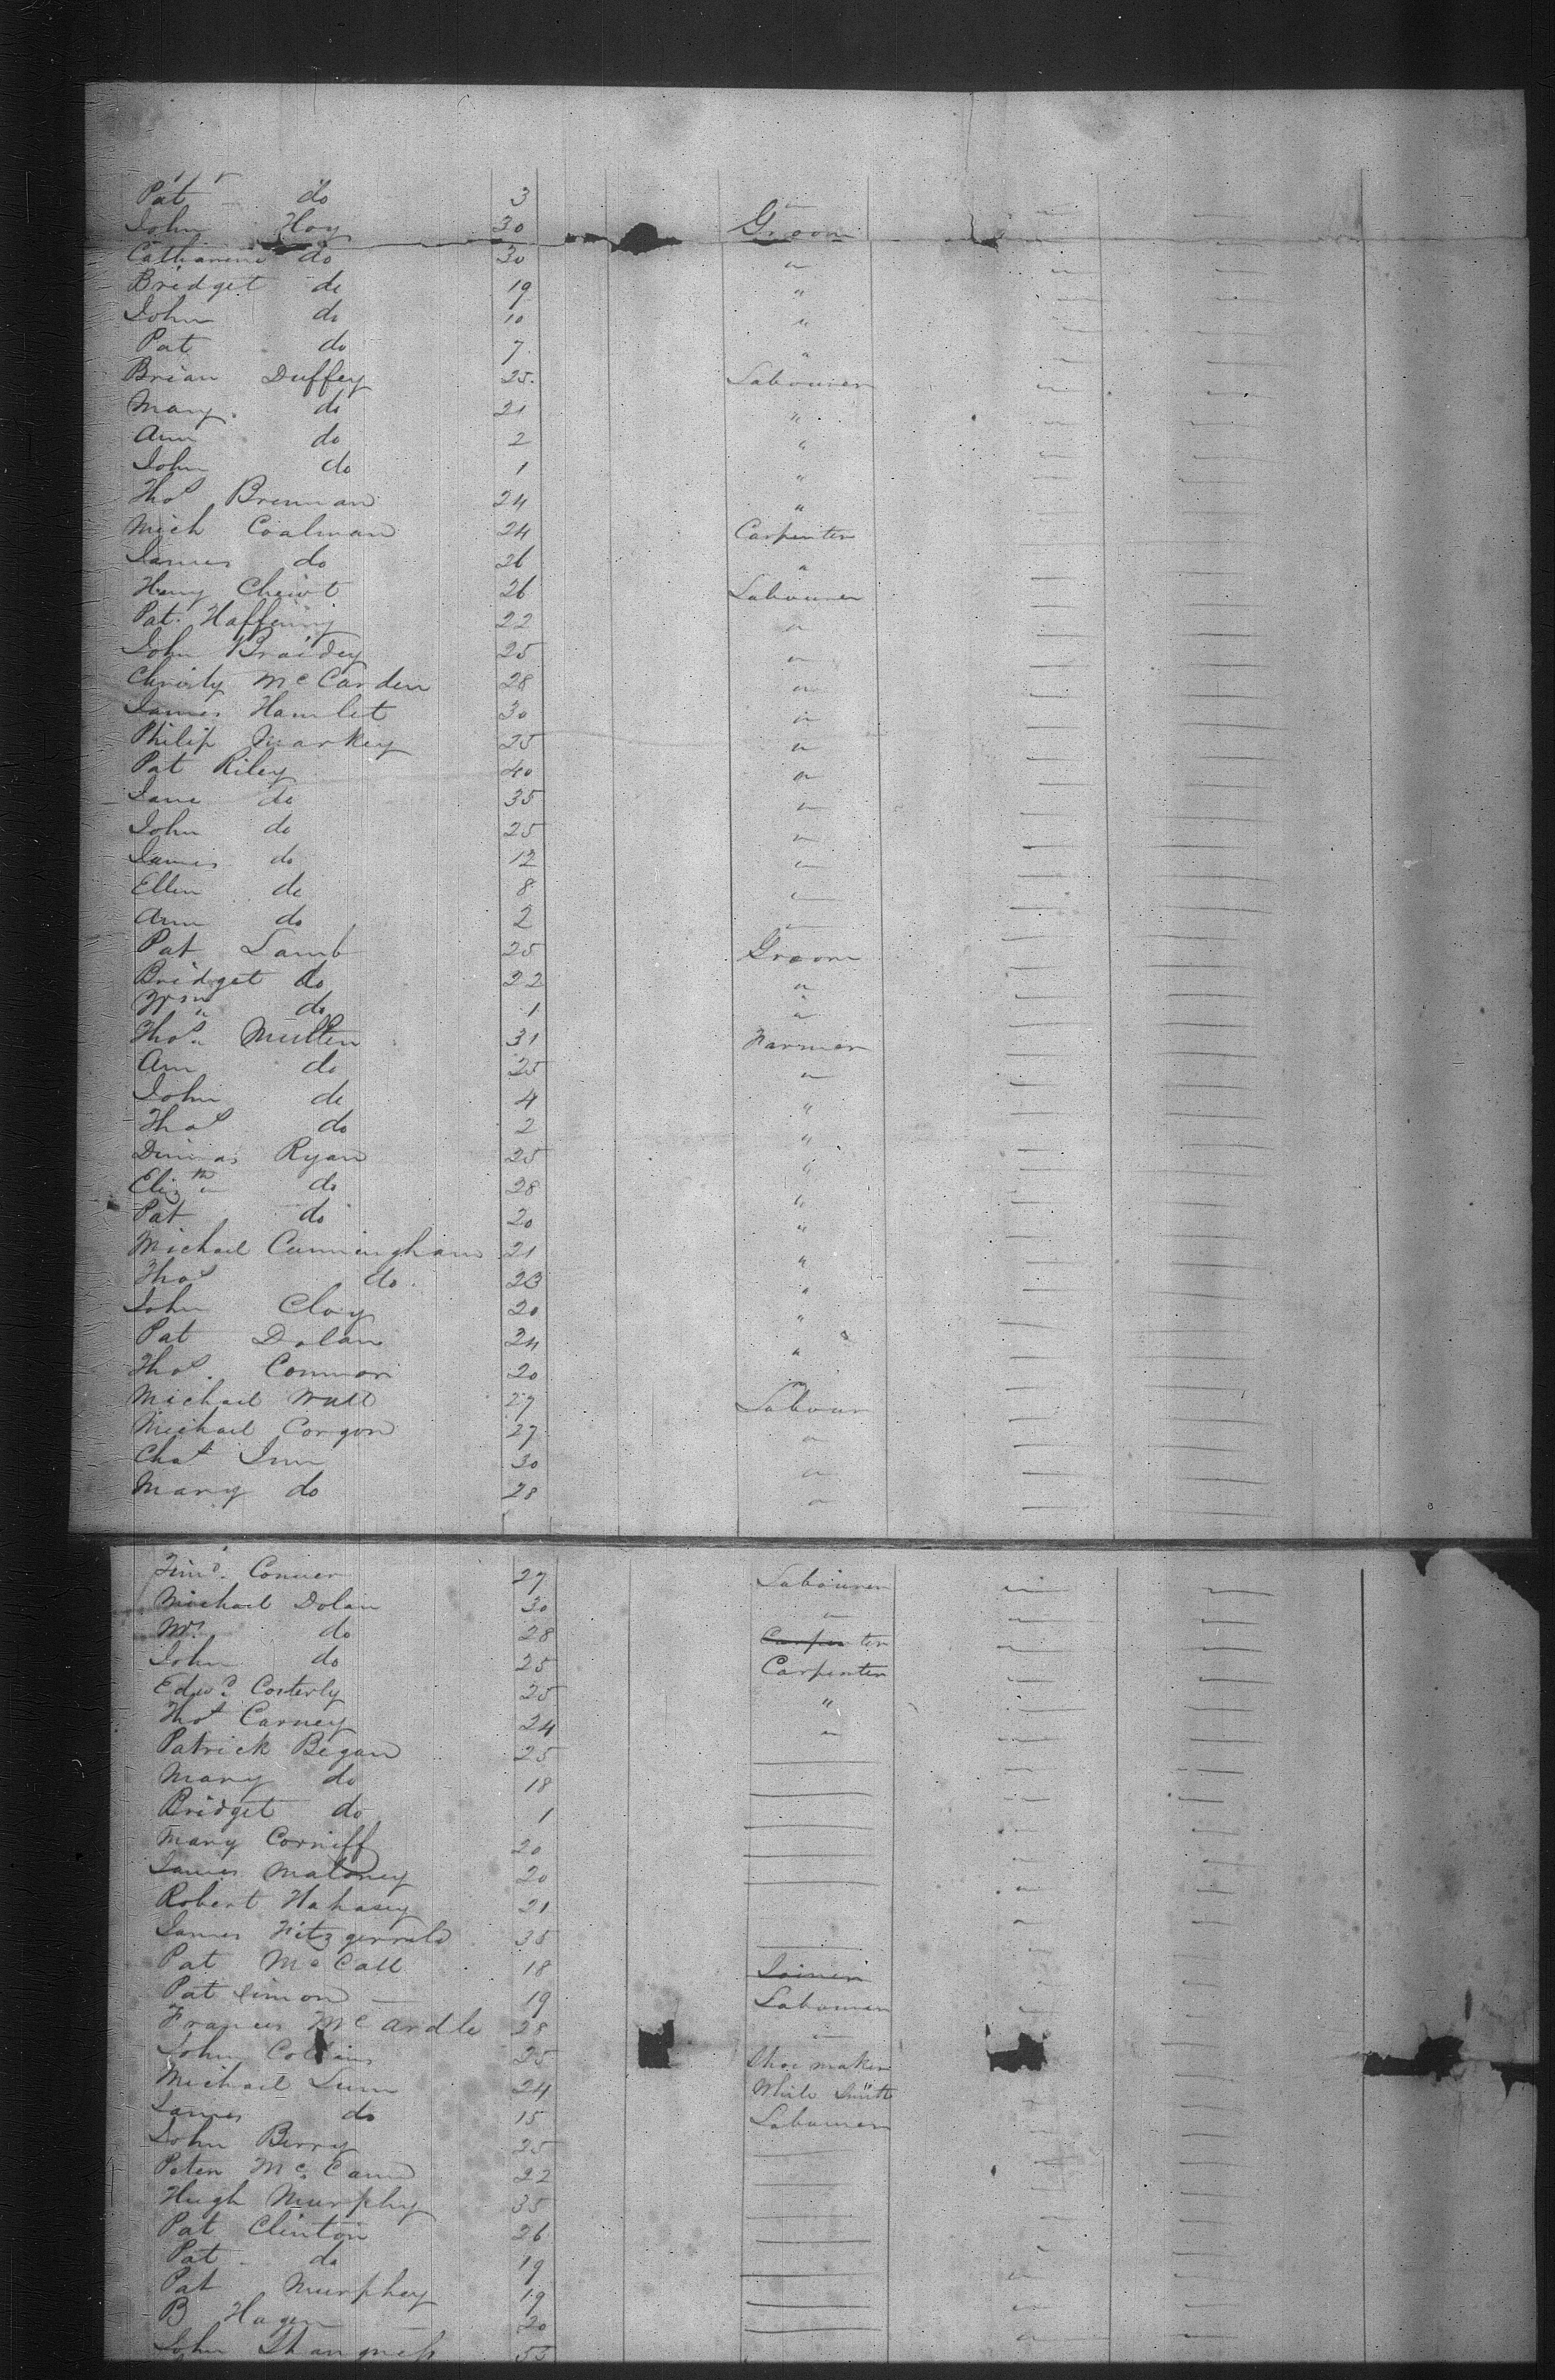 Pat do 3 "
John Hoy 30 Groom
Catharine do 30 "
Bridget do 19 "
John do 10 "
Pat do 7 "
Brian Duffey 25 Labourer
Mary do 21 "
Ann do 2 "
John do 1 "
Thos Brennan 24 "
Mich Coalman 24 Carpenter
James do 26 "
Henry 26 Labourer
Pat 22 "
John Braidey 25 "
Christy McCarden 28 "
James Hamlet 30 "
Philip Markey 25 "
Pat Riley 40 "
Jane do 35 "
John do 25 "
James do 12 "
Ellen do 8 "
Ann do 2 "
Pat Lamb 25 Groom
Bridget do 22 "
Wm do 1 "
Thos Mullen 31 Farmer
Ann do 25 "
John do 4 "
Thos do 2 "
Ryan 25 "
Elizth do 28 "
Pat do 20 "
Michael Cunningham 21 "
Thos do 23 "
John Cloy 20 "
Pat Dolan 24 "
Thos Connor 20 "
Michael Wall 27 Labour
Michael Corgon 27 "
30 "
Mary do 28 "
Conner 27 Labourer
Michael Dolan 30 "
do 28 Carpenter
John do 25 Carpenter
Edwd Costerly 25 "
Thos Carney 24 "
Patrick Began 25
Mary do 18
Bridget do 1
Mary Corniff 20
James Maloney 20
Robert Hahasey 21
James Fitzgerrald 35
Pat McCall 18 Joiner
Pat Limon 19 Labourer
Francis McArdle 28 "
John Collins 25 Shoe maker
Michael 24 White Smith
James do 15 Labourer
John Berry 25
Peter McCann 22
Hugh Murphy 35
Pat Clinton 26
Pat do 19
Pat Murphey 19
B Hagen 20
John 55